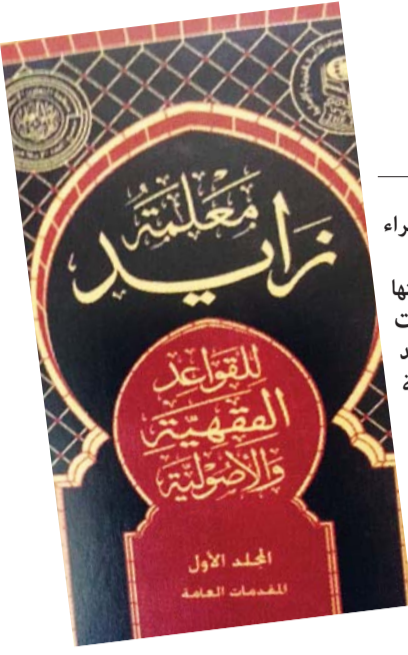 مَعْلَمَةُ
زَايد
للقَواعد
الفقهيّة
وَالأصُوليّة
المجلد الأول
المقدمات العامة
راء
تها
ت
د
ة